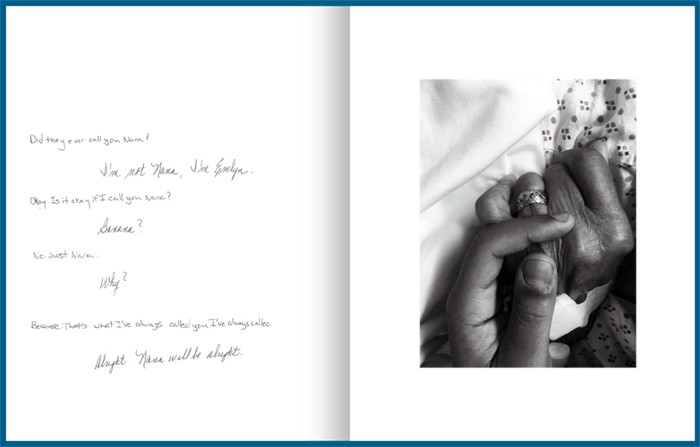 Did they ever call you Nana?
I'm not Nana, I'm Evelyn.
Okay. Is it okay if I call you Nana?
Banana?
No Just Nana.
Why?
Because That's what I've always called you I've always called
Alright Nana will be alright.